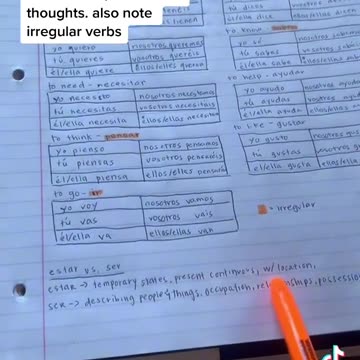 thoughts. also note
irregular verbs
tienen
tú dices
él/ella dice ellos/ellas dicen
yo quiero nosotros queremos
tú quieres vosotros queréis
él/ella quiere ellos/ellas
to know -
yo sé
tú sabes
él/ella sabe
to need - necesitar
yo necesito nosotros necesitamos
tú necesitas vosotros necesitáis
él/ella necesita ellos/ellas necesitan
to help - ayudar
yo ayudo
tú ayudas
él/ella ayuda
to think - pensar
yo pienso nosotros pensamos
tú piensas vosotros pensáis
él/ella piensa ellos/ellas piensan
- gustar
yo gusto
tú gustas
él/ella gusta
to go - ir
yo voy nosotros vamos
tú vas vosotros vais
él/ella va ellos/ellas van
= irregular
estar vs. ser
estar → temporary states, present continuous, w/ location,
ser → describing people & things, occupation, relationships, possession